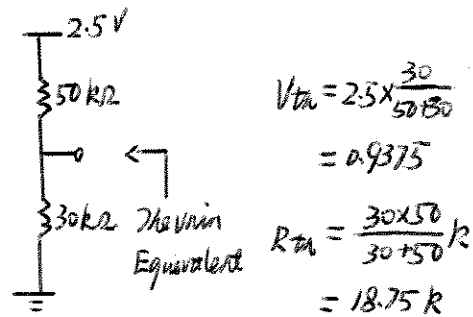 2.5 V
50 kΩ
30 kΩ
Thevnin
Equivalent
Vth = 2.5 × 30 / 50+30
= 0.9375
Rth = 30×50 / 30+50 k
= 18.75 k